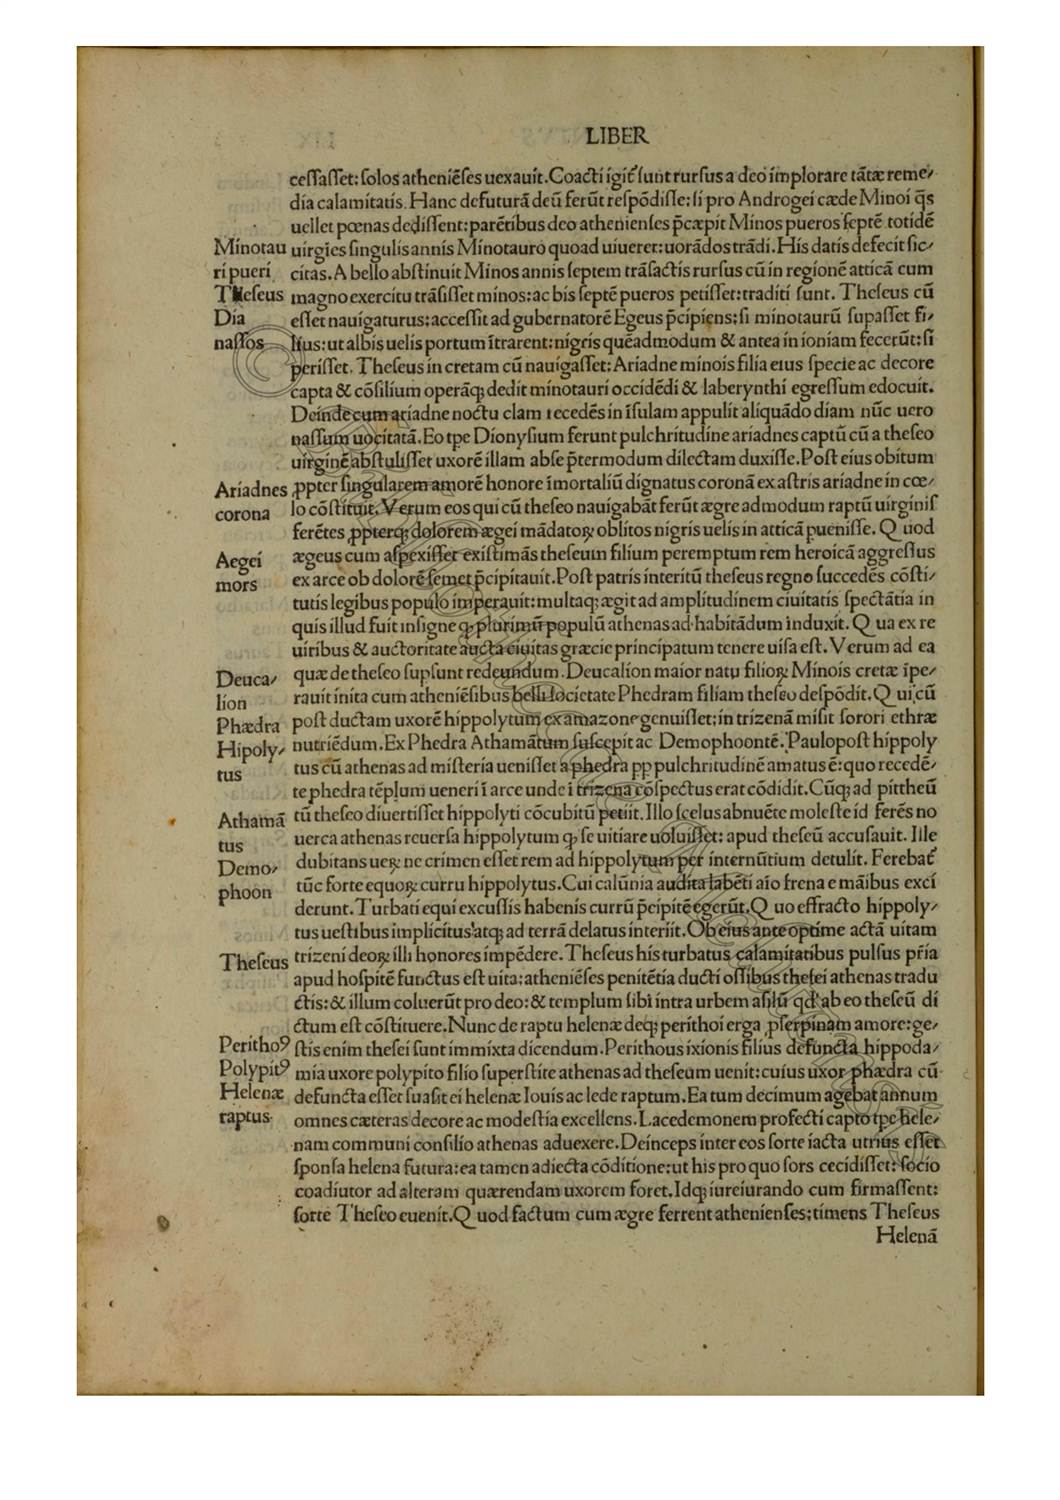 LIBER
ceſſaſſet: ſolos atheniẽſes uexauit. Coacti igit᷑ ſunt rurſus a deo implorare tãtæ reme⸗
dia calamitatis. Hanc defuturã deũ ferũt reſpõdiſſe: ſi pro Androgei cæde Minoi q̃s
uellet pœnas dediſſent: parẽtibus deo athenienſes p̃cæpit Minos pueros ſeptẽ totidẽ
Minotau
uirgies ſingulis annis Minotauro quoad uiueret: uorãdos trãdi. His datis defecit ſic⸗
ri pueri
citas. A bello abſtinuit Minos annis ſeptem trãſactis rurſus cũ in regionẽ atticã cum
Theſeus
magno exercitu trãſiſſet minos: ac bis ſeptẽ pueros petiſſet: traditi ſunt. Theſeus cũ
Dia
eſſet nauigaturus: acceſſit ad gubernatorẽ Egeus p̃cipiens: ſi minotaurũ ſupaſſet fi⸗
naſſos
lius: ut albis uelis portum ĩtrarent: nigris quẽadmodum & antea in ioniam fecerũt: ſi
periſſet. Theſeus in cretam cũ nauigaſſet: Ariadne minois filia eius ſpecie ac decore
capta & cõſilium operãq; dedit minotauri occidẽdi & laberynthi egreſſum edocuit.
Deinde cum ariadne noctu clam recedẽs in ĩſulam appulit aliquãdo diam nũc uero
naſſum uocitatã. Eo tpe Dionyſium ferunt pulchritudine ariadnes captũ cũ a theſeo
uirginẽ abſtuliſſet uxorẽ illam abſe p̃termodum dilectam duxiſſe. Poſt eius obitum
Ariadnes
ꝓpter ſingularem amorẽ honore ĩmortaliũ dignatus coronã ex aſtris ariadne in cœ⸗
corona
lo cõſtituit. Verum eos qui cũ theſeo nauigabãt ferũt ægre admodum raptũ uirginiſ
ferẽtes ꝓpterq; dolorem ægei mãdatoꝝ oblitos nigris uelis in atticã pueniſſe. Quod
Aegei
ægeus cum aſpexiſſet exiſtimãs theſeum filium peremptum rem heroicã aggreſſus
mors
ex arce ob dolorẽ ſemet p̃cipitauit. Poſt patris interitũ theſeus regno ſuccedẽs cõſti⸗
tutis legibus populo imperauit: multaq; ægit ad amplitudinem ciuitatis ſpectãtia in
quis illud fuit inſigne ꝙ plurimũ populũ athenas ad habitãdum induxit. Qua ex re
uiribus & auctoritate aucta ciuitas græcie principatum tenere uiſa eſt. Verum ad ea
quæ de theſeo ſupſunt redeundum. Deucalion maior natu filioꝝ Minois cretæ ĩpe⸗
Deuca⸗
lion
rauit inita cum atheniẽſibus belli ſocietate Phedram filiam theſeo deſpõdit. Qui cũ
Phædra
poſt ductam uxorẽ hippolytum ex amazone genuiſſet: in trizenã miſit ſorori ethræ
Hipoly⸗
nutriẽdum. Ex Phedra Athamãtum ſuſcepit ac Demophoontẽ. Paulopoſt hippoly
tus
tus cũ athenas ad miſteria ueniſſet a phedra pp pulchritudinẽ amatus ẽ: quo recedẽ⸗
te phedra tẽplum ueneri ĩ arce unde ĩ trizena cõſpectus erat cõdidit. Cũq; ad pittheũ
Athamã
tũ theſeo diuertiſſet hippolyti cõcubitũ petiit. Illo ſcelus abnuẽte moleſte id ferẽs no
tus
uerca athenas reuerſa hippolytum ꝙ ſe uitiare uoluiſſet: apud theſeũ accuſauit. Ille
Demo⸗
dubitans ueꝝ ne crimen eſſet rem ad hippolytum per internũtium detulit. Ferebat᷑
phoon
tũc forte equoꝝ curru hippolytus. Cui calũnia audita labẽti aĩo frena e mãibus exci
derunt. Turbati equi excuſſis habenis currũ p̃cipitẽ egerũt. Quo effracto hippoly⸗
tus ueſtibus implicitus atq; ad terrã delatus interiit. Ob eius ante optime actã uitam
Theſeus
trizeni deoꝝ illi honores impẽdere. Theſeus his turbatus calamitatibus pulſus pr̃ia
apud hoſpitẽ functus eſt uita: atheniẽſes penitẽtia ducti oſſibus theſei athenas tradu
ctis: & illum coluerũt pro deo: & templum ſibi intra urbem aſilũ qd̓ ab eo theſeũ di
ctum eſt cõſtituere. Nunc de raptu helenæ deq; perithoi erga ꝓſerpinam amore: ge⸗
Peritho9
ſtis enim theſei ſunt immixta dicendum. Perithous ixionis filius defuncta hippoda⸗
Polypit9
mia uxore polypito filio ſuperſtite athenas ad theſeum uenit: cuius uxor phædra cũ
Helenæ
defuncta eſſet ſuaſit ei helenæ Iouis ac lede raptum. Ea tum decimum agebat annum
raptus
omnes cæteras decore ac modeſtia excellens. Lacedemonem profecti capto tpe hele⸗
nam communi conſilio athenas aduexere. Deinceps inter eos ſorte iacta utrius eſſet
ſponſa helena futura: ea tamen adiecta cõditione: ut his pro quo ſors cecidiſſet: ſocio
coadiutor ad alteram quærendam uxorem foret. Idq; iureiurando cum firmaſſent:
ſorte Theſeo euenit. Quod factum cum ægre ferrent athenienſes: timens Theſeus
Helenã